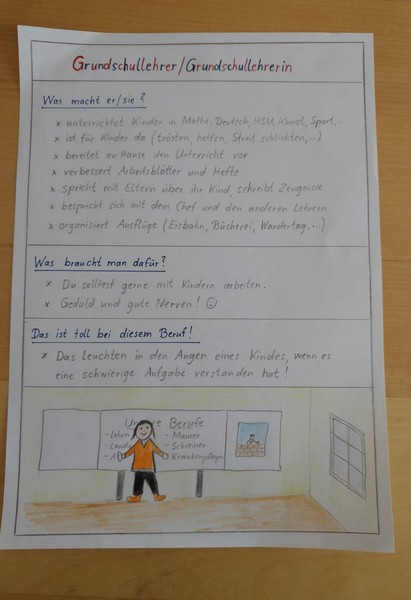 Grundschullehrer/Grundschullehrerin
Was macht er/sie?
x unterrichtet Kinder in Mathe, Deutsch, HSU, Kunst, Sport,..
x ist für Kinder da (trösten, helfen, Streit schlichten,..)
x bereitet zu Hause den Unterricht vor
x verbessert Arbeitsblätter und Hefte
x spricht mit Eltern über ihr Kind, schreibt Zeugnisse
x bespricht sich mit dem Chef und den anderen Lehrern
x organisiert Ausflüge (Eisbahn, Bücherei, Wandertag,...)
Was braucht man dafür?
x Du solltest gerne mit Kindern arbeiten.
x Geduld und gute Nerven! ☺
Das ist toll bei diesem Beruf!
x Das Leuchten in den Augen eines Kindes, wenn es
eine schwierige Aufgabe verstanden hat!
Berufe
- Maurer
- Schreiner
- Krankenpfleger